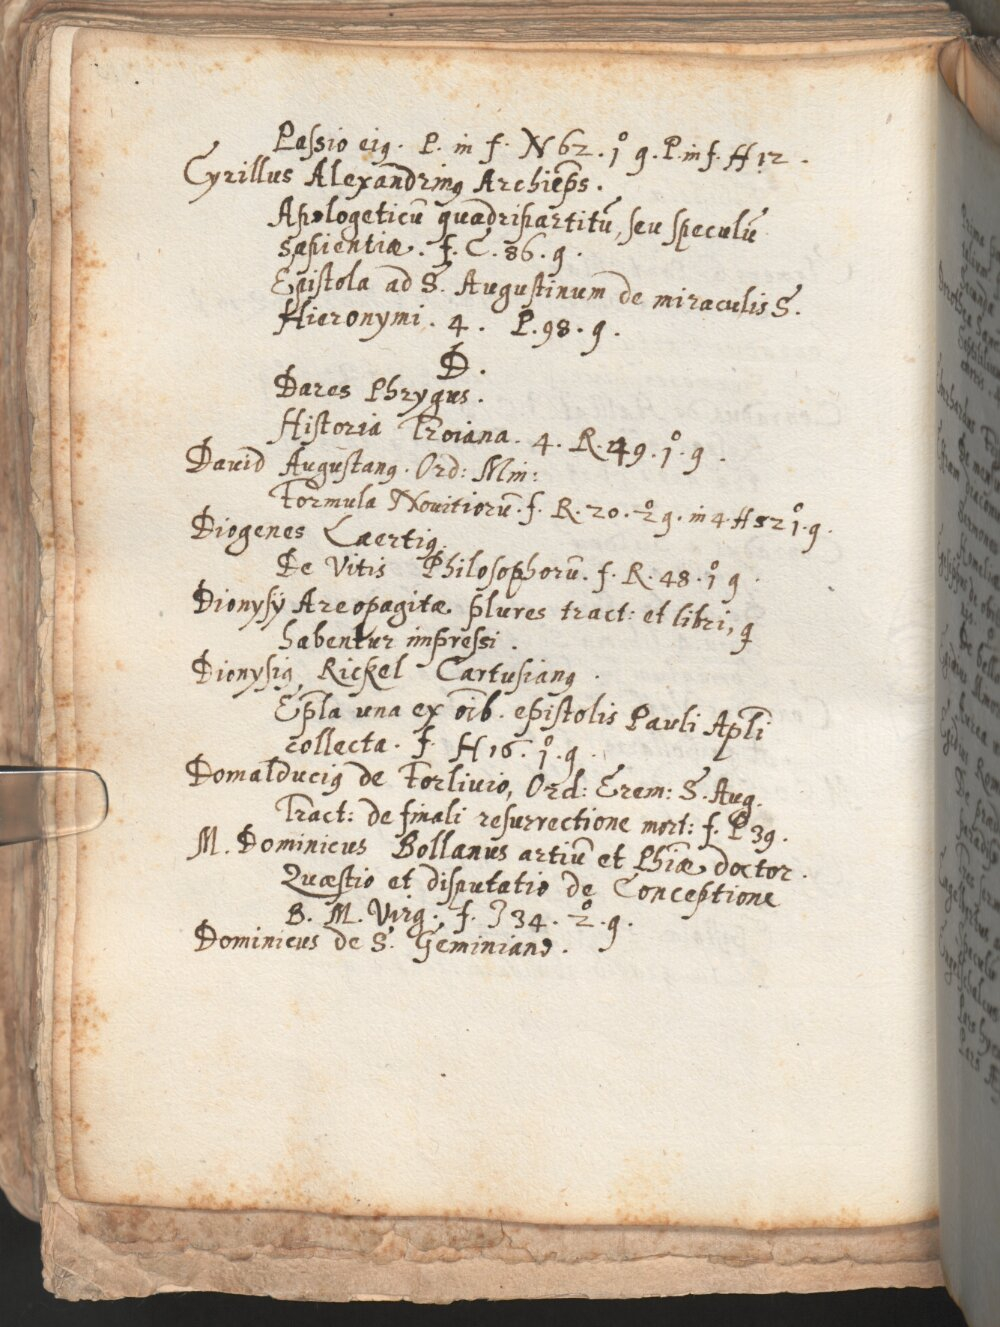 Passio eiꝰ. P. in f. N 62. 1º 9. P. in f. H 12.
Cyrillus Alexandrinꝰ Archiēps.
Apologeticū quadripartitū, seu speculū
sapientiæ. f. C. 86. 9.
Epistola ad S. Augustinum de miraculis S.
Hieronymi. 4. P. 98. 9.
D.
Dares Phrygus.
Historia Troiana. 4. R. 49. 1º. 9.
Dauid Augustanꝰ. Ord: Min:
Formula Nouitiorū. f. R. 20. 2º 9. in 4. H 52 1º. 9.
Diogenes Laertiꝰ.
De Vitis Philosophorū. f. R. 48. 1º 9.
Dionysij Areopagitæ plures tract: et libri, q̄
habentur impressi.
Dionysiꝰ Rickel Cartusianꝰ.
Ep̄la una ex oīb. epistolis Pauli Apl̄i
collecta. f. H 16. 1º. 9.
Domalduciꝰ de Forliuio, Ord: Erem: S. Aug.
Tract: de finali resurrectione mort: f. P 39.
M. Dominicus Bollanus artiū et Phīæ doctor.
Quæstio et disputatio de Conceptione
B. M. Virg: f. J 34. 2º. 9.
Dominicus de S. Geminiano.